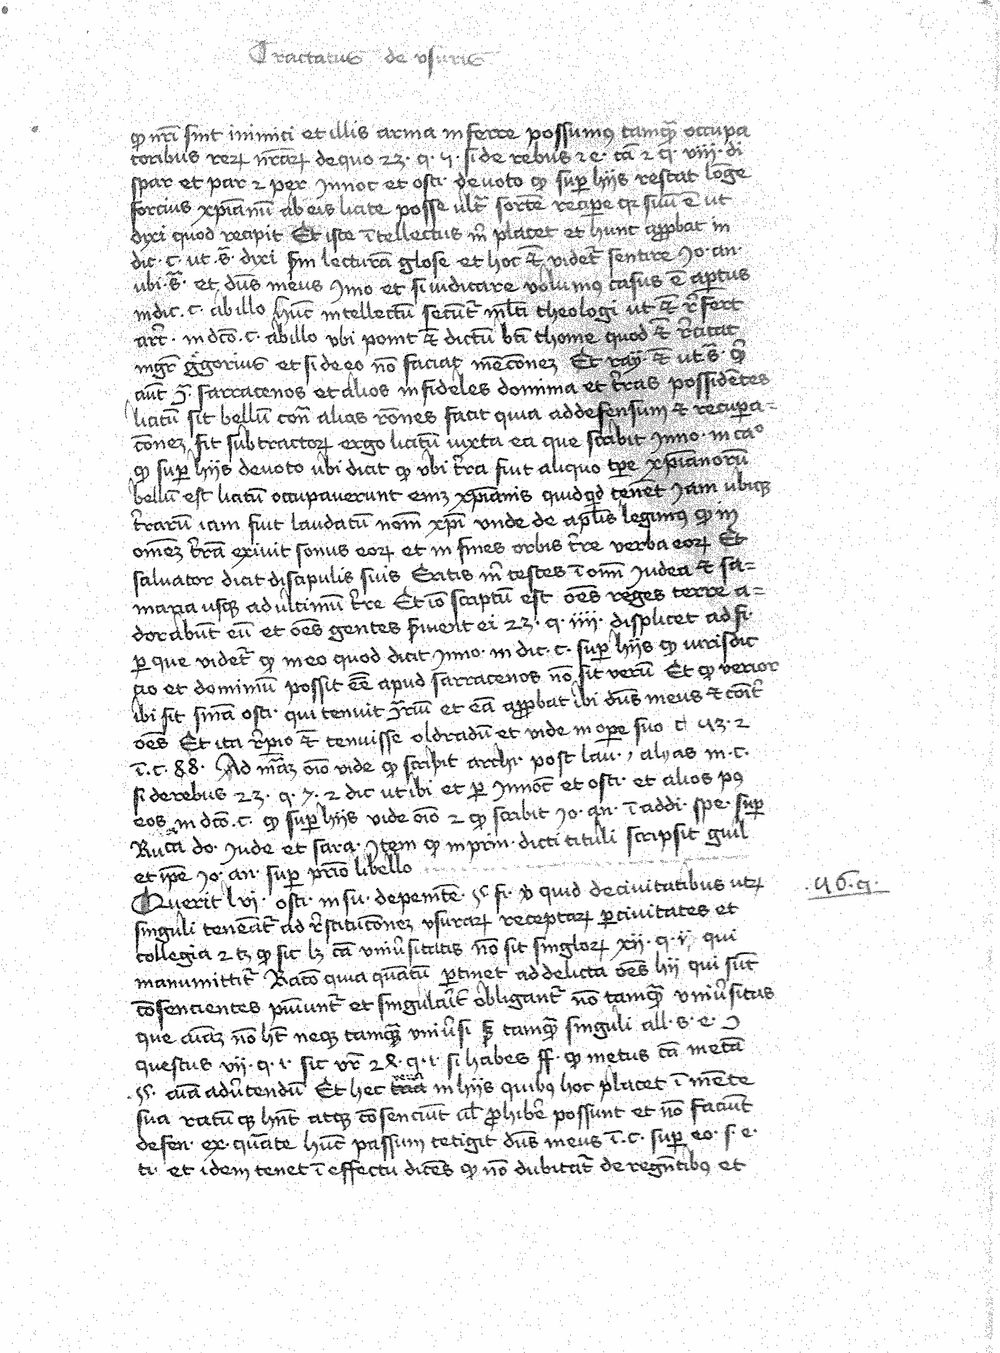 Tractatus de vsuris
qͦ nr̄i sint inimici et illis arma inferre possumus tamqᷓ occupa
toribus rerꝝ nr̄arꝝ de quo 23. q. 7. si de rebus 2 e. cā 2 q. viii. di
spar et par 2 per Innoc et osti. de voto qͦ sup hiis restat lōge
forcius xp̄ianū ab eis licite posse ultᷓ sortē recipe qr suū ē ut
dixi quod recipit Et iste ītellectus m̄ placet et hunc app̄bat in
dic. c. ut s̄. dixi s̄m lecturā glose et hoc etᷓ videtᷓ sentire Jo. an.
ubi. s̄. et dn̄s meus Imo et si iudicare volumus casus ē aptus
in dic. c. ab illo hūc intellectū secūtᷓ ml̄ti theologi ut etᷓ r̄fert
art̄. in dcō. c. ab illo vbi ponit etᷓ dictū bt̄i thome quod etᷓ r̄citat
mgr̄ ḡgorius et si de eo nō faciat mēconeꝫ Et ray. etᷓ ut s̄. qͦ
aūt sarracenos et alios infideles domina et tr̄as possidētes
licitū sit bellū con̄ alias rōnes facit quia ad defensum etᷓ recupa=
cōneꝫ fit subtractorꝝ ergo licitū iuxta ea que scribit Inno. in caͦ
qͦ sup hiis de voto ubi dicit qͦ vbi tr̄ra fuit aliquo tpe xp̄ianorū
bellū est licitū occupaverunt eniꝫ xp̄ianis quidqͥd tenēt Jam ubiqꝫ
tr̄rarū iam fuit laudatū nom̄ xp̄i vnde de apl̄is legimus qͦ in
omēꝫ tr̄rā exivit sonus eorꝝ et in fines orbis tr̄re verba eorꝝ Et
salvator dicit discipulis suis Eritis m̄ testes ī om̄i Judea etᷓ sa=
maria usqꝫ ad ultimū tr̄re Et iō scriptū est oēs reges terre a=
dorabūt eū et oēs gentes s̄vient ei 23. q. iiii. displicet ad fi.
p que videtᷓ qͦ in eo quod dicit Inno. in dic. c. sup hiis qͦ iurisdic
cio et dominiū possit eē apud sarracenos nō sit verū Et qͦ verior
ibi sit sn̄ia osti. qui tenuit et eā app̄bat ibi dn̄s meus etᷓ cōitᷓ
oēs Et ita r̄pio etᷓ tenuisse oldradū et vide in ope suo c 43. 2
ī. c. 88. Ad mᷓaꝫ oīo vide qͦ scribit archi. post lau., alias in. c.
si de rebus 23. q. 7. 2 dic ut ibi et p Innoc̄ et osti. et alios pꝰ
eos in dcō. c. qͦ sup hiis vide oīo 2 qͦ scribit Jo. an. ī addi. spe. sup
Ruᷓca do. Jude et sara. Item qͦ in prin. dicti tituli scripsit guil
et ipe Jo. an. sup prīo libello
Querit lvi. osti. in su. de penitē. §. fi. v̄ quid de civitatibus utꝝ
singuli teneātᷓ ad r̄stitucōneꝫ vsurarꝝ receptarꝝ p civitates et
collegia 2 tꝫ qͦ sic lꝫ cā vniūsitatis nō sit singlorꝝ xii. q. ii qui
manumittitᷓ Racō quia quātū ptinet ad delicta oēs hii qui sūt
cōsencientes puniūtᷓ et singularitᷓ obligantᷓ nō tamqᷓ vniūsitas
que aīaꝫ nō ht̄ neqꝫ tamqᷓ vniūsi sꝫ tamqᷓ singuli all. s. e.
questus vii. q. i. sic vr̄ 2 x. q. i. si habes ff. qͦ metus cā metā
.§. aīa ad adūtendū Et hec in hiis quibus hoc placet ī mēte
sua ratūqꝫ hn̄t atqꝫ cōsenciūt cū p̄hibē possunt et nō faciūt
defen. ex. quāte hūc passum tetigit dn̄s meus ī. c. sup eo. s. e.
ti. et idem tenet ī effectu dicēs qͦ nō dubitatᷓ de regn̄tibus et
.46. q.